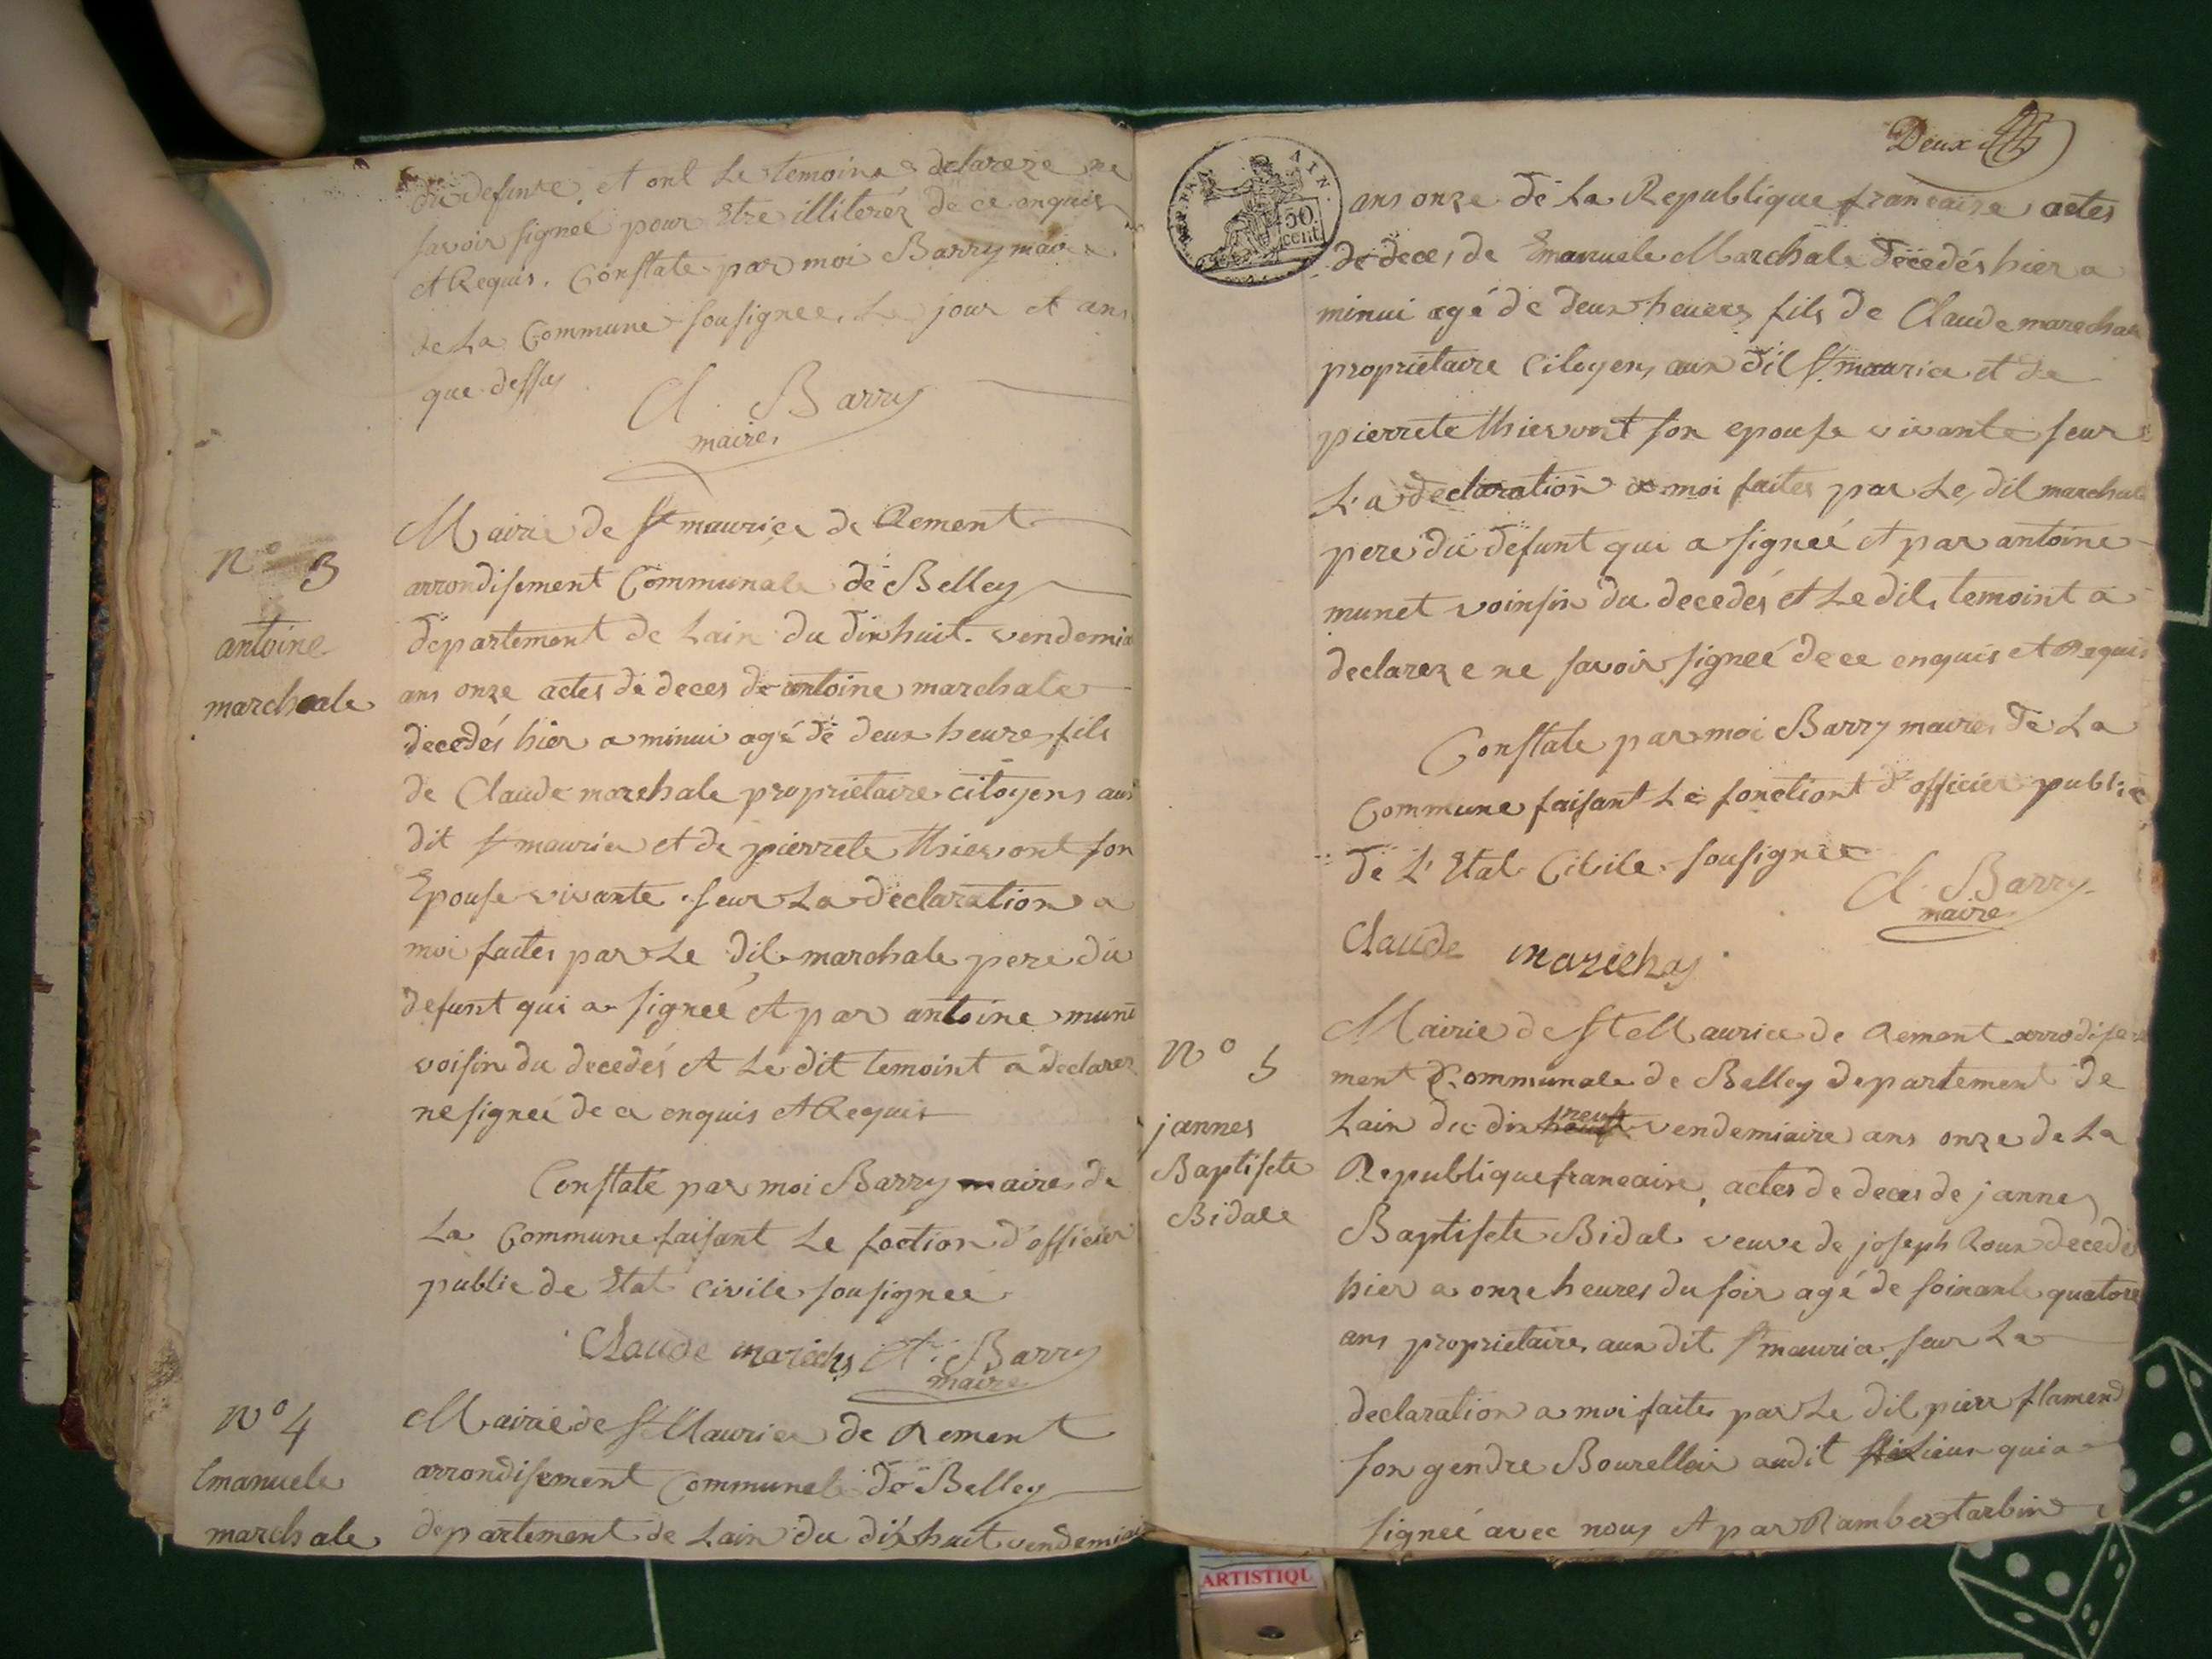 du defunte et ont Le temoins declareze ne
savoir signeé pour Etre illiterez de ce enquis
et Requis. Constate par moi Barry maire
de La Commune sousignee, Le jour et ans
que dessus
Cl. Barry
maire
N° 3
antoine
marchale
Mairie de St maurice de Rement
arrondisement Communale de Belley
departement de Lain du dixhuit vendemia
ans onze actes de deces de antoine marchale
decedés hier a minui agé de deux heure, fils
de Claude marchale proprietaire citoyens aux
dit St maurice et de pierrete thiervont son
Epouse vivante. seur La declaration a
moi faites par Le dit marchale pere du
defunt qui a signeé et par antoine mune
voisin du decedés et Le dit temoint a declarez
ne signeé de ce enquis et Requis
Constate par moi Barry maire de
La Commune faisant Le foction d'officier
public de Etat civile sousignee
Claude marichs Cl. Barry
maire
N° 4
Emanuele
marchale
Mairie de St Maurice de Rement
arrondisement Communale de Belley
departement de Lain du dixhuit vendemiai
Deux
REP. FRA AIN
50
cent.
ans onze de La Republique francaise actes
de deces de Emanuele Marchale decedés hier a
minui agé de deux heuers fils de Claude marechale
proprietaire citoyens aux dit St maurice et de
pierrete thiervont son epouse vivante seur
L'a declaration a moi faites par Le dit marchale
pere du defunt qui a signeé et par antoine
munet voinsin du decedés et Le dit temoint a
declarez e ne savoir signeé de ce enquis et Requis
Constate par moi Barry maire de La
Commune faisant Le fonctiont d'officier public
de L'Etat Cibile sousignee
Cl. Barry
maire
Claude marichas
N° 5
jannes
Baptiste
Bidale
Mairie de St Maurice de Rement arrodise
ment Communale de Belley departement de
Lain du dix neuf vendemiaire ans onze de La
Republique francaire, actes de deces de jannes
Baptiste Bidal veuve de joseph Roux decedé
hier a onze heures du soir agé de soixante quatore
ans proprietaire aux dit St maurice seur La
declaration a moi faite par Le dit pierr flamend
son gendre Bourellair audit lieux qui a
signeé avec nous et par Rambertarbin
ARTISTIQU